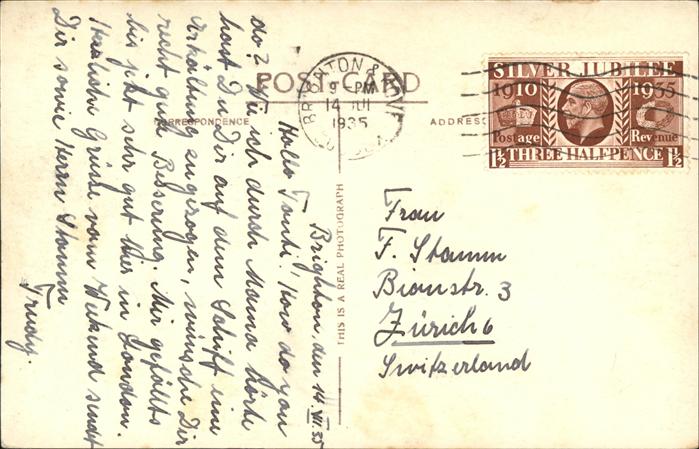 POST-CARD
CORRESPONDENCE
ADDRESS
THIS IS A REAL PHOTOGRAPH
BRIGHTON & HOVE
9 - PM
14 JUL
1935
SILVER JUBILEE
1910 1935
Postage Revenue
THREE HALFPENCE
1½ 1½
Brighton, den 14.VII.35
Hallo Tanti! How do you
do? Wie ich durch Mama hörte
hast Du Dir auf dem Schiff eine
Erkältung zugezogen, wünsche Dir
recht gute Besserung. Mir gefällts
bis jetzt sehr gut hier in London.
Herzliche Grüsse vom Weekend sendet
Dir sowie Herrn Stamm
Trudy.
Frau
F. Stamm
Bionstr. 3
Zürich 6
Switzerland